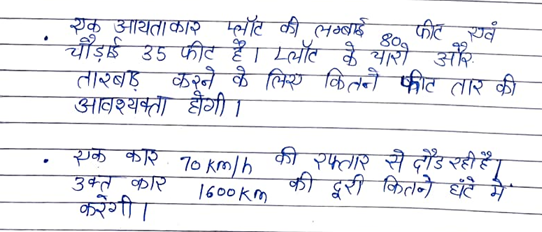 • एक आयताकार प्लॉट की लम्बाई 80 फीट एवं
चौड़ाई 35 फीट है। प्लॉट के चारो और
तारबड़ करने के लिए कितने फीट तार की
आवश्यक्ता होगी।
• एक कार 70 km/h की रफ्तार से दौड रही है।
उक्त कार 1600 km की दूरी कितने घंटे में
करेगी।